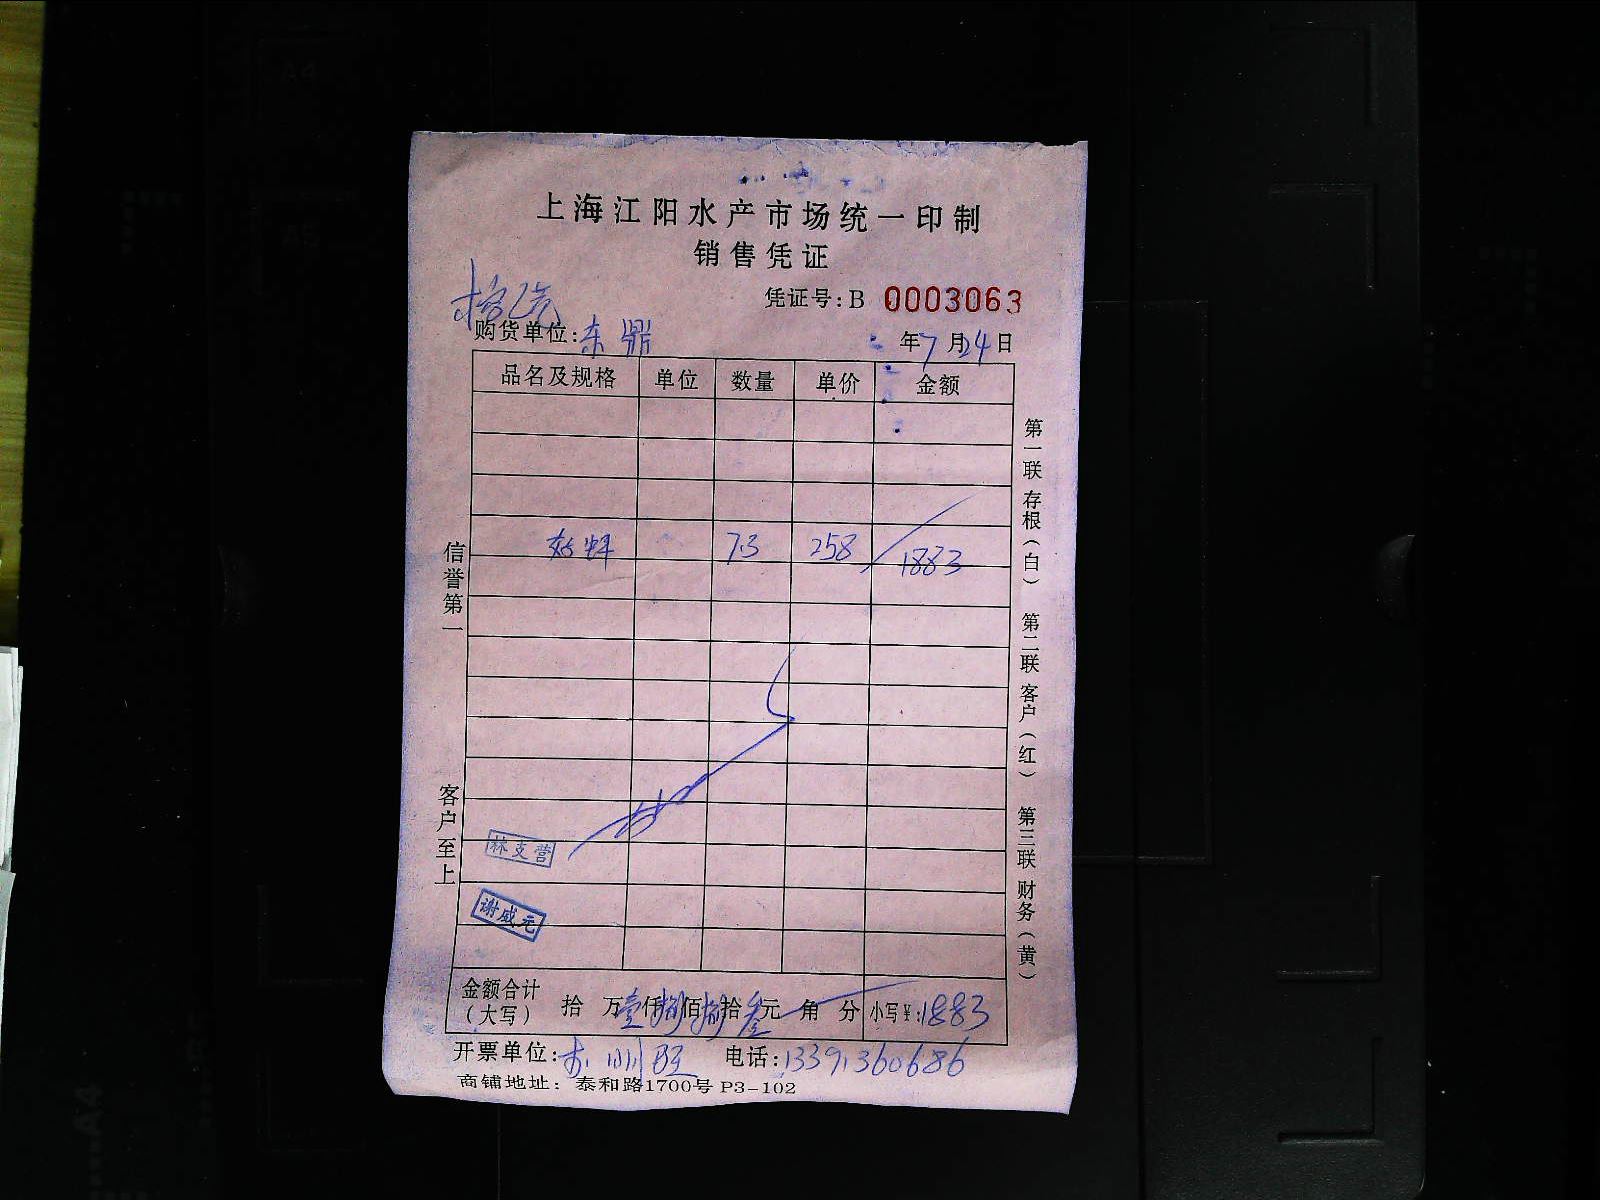 上海江阳水产市场统一印制
销售凭证
凭证号:B 0003063
购货单位:东鼎
年7月24日
品名及规格 单位 数量 单价 金额
7.3 258 1883
信誉第一
客户至上
第一联存根(白) 第二联客户(红) 第三联财务(黄)
林支营
谢威元
金额合计(大写) 拾 万壹仟捌佰捌拾叁元 角 分 小写¥:1883
开票单位: 电话:13391360686
商铺地址: 泰和路1700号 P3-102